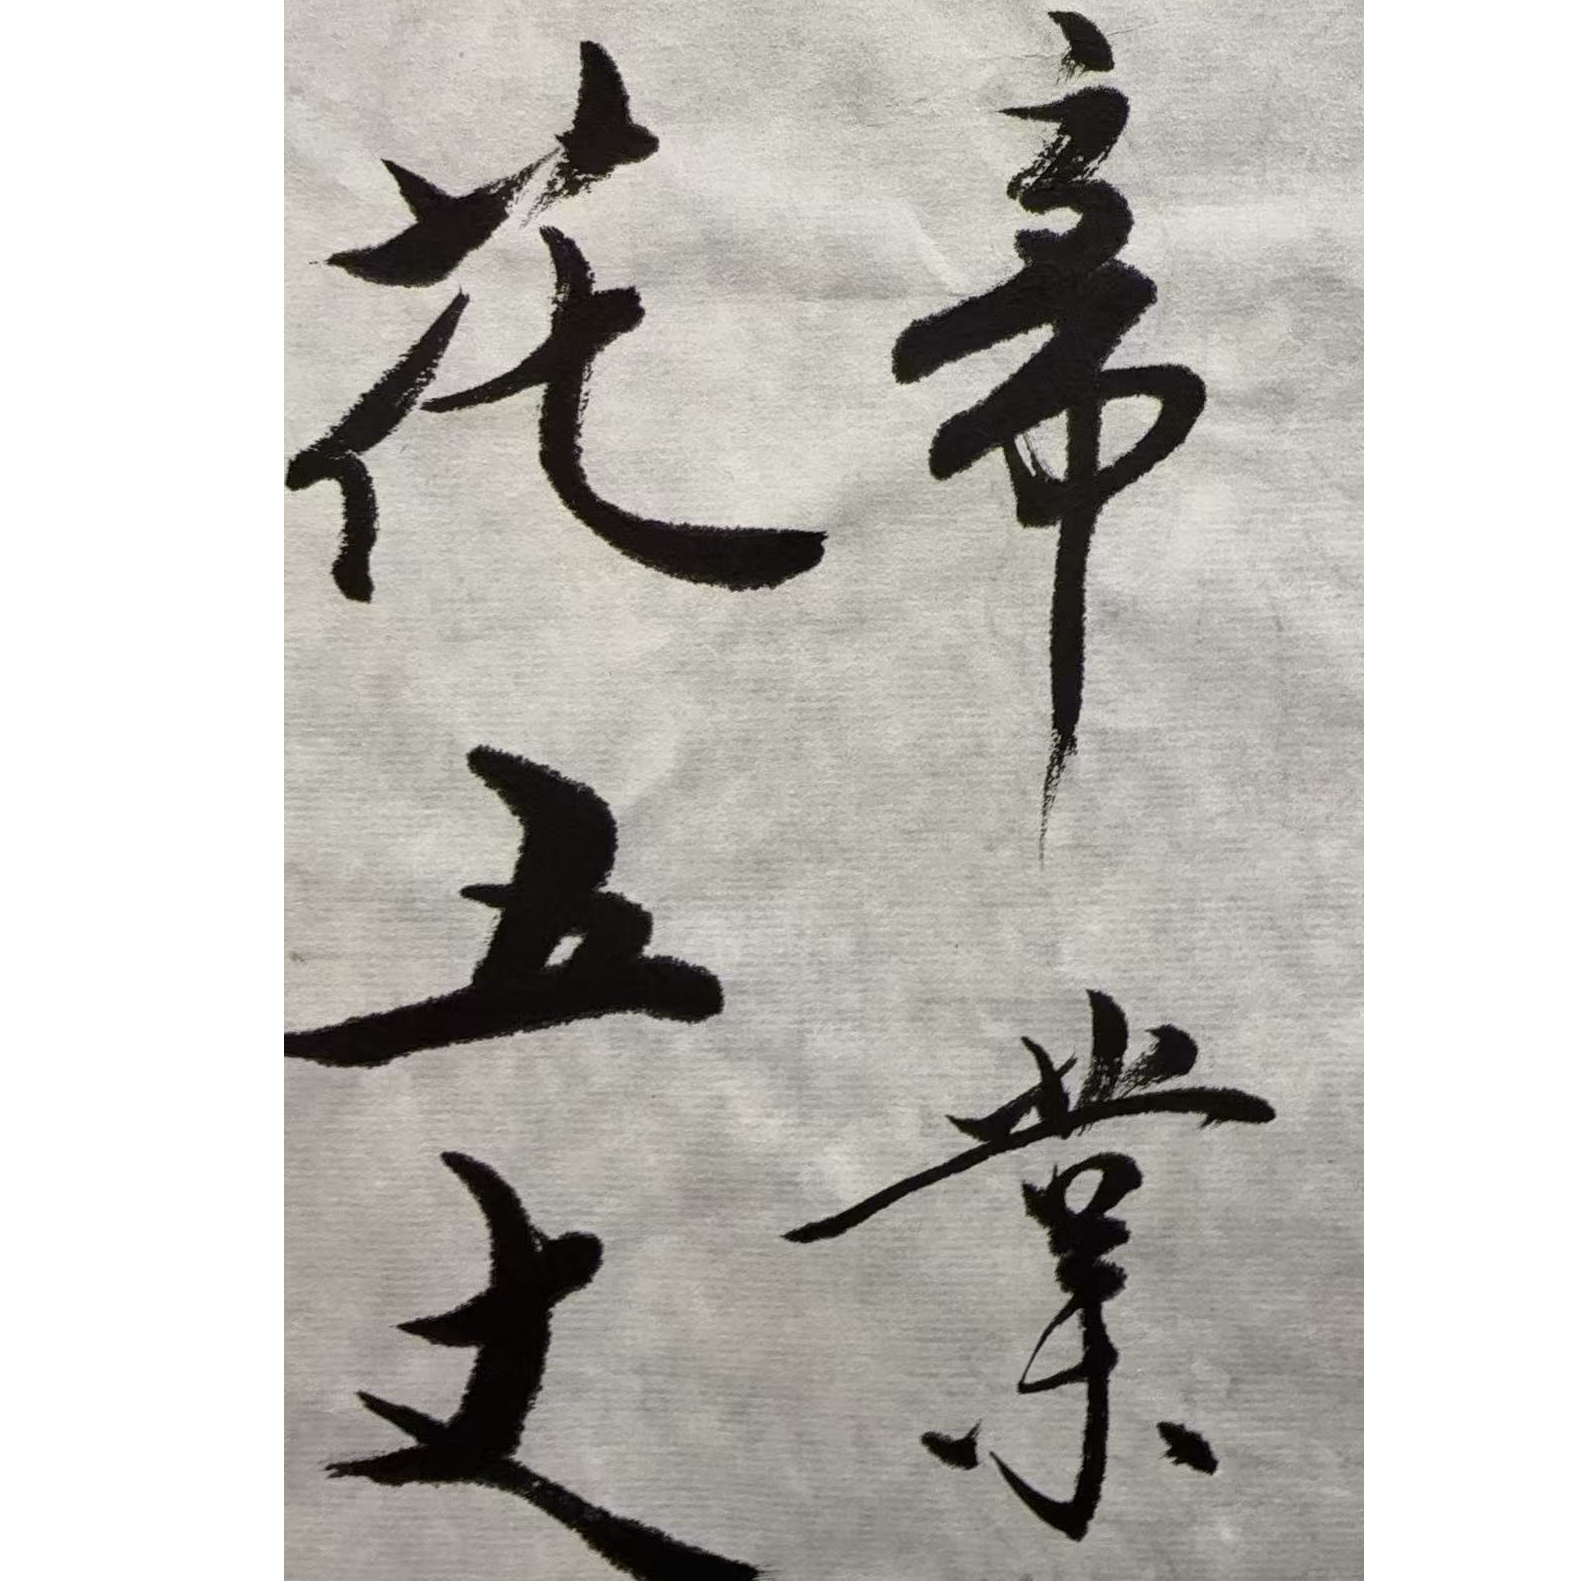 帝業
花五丈